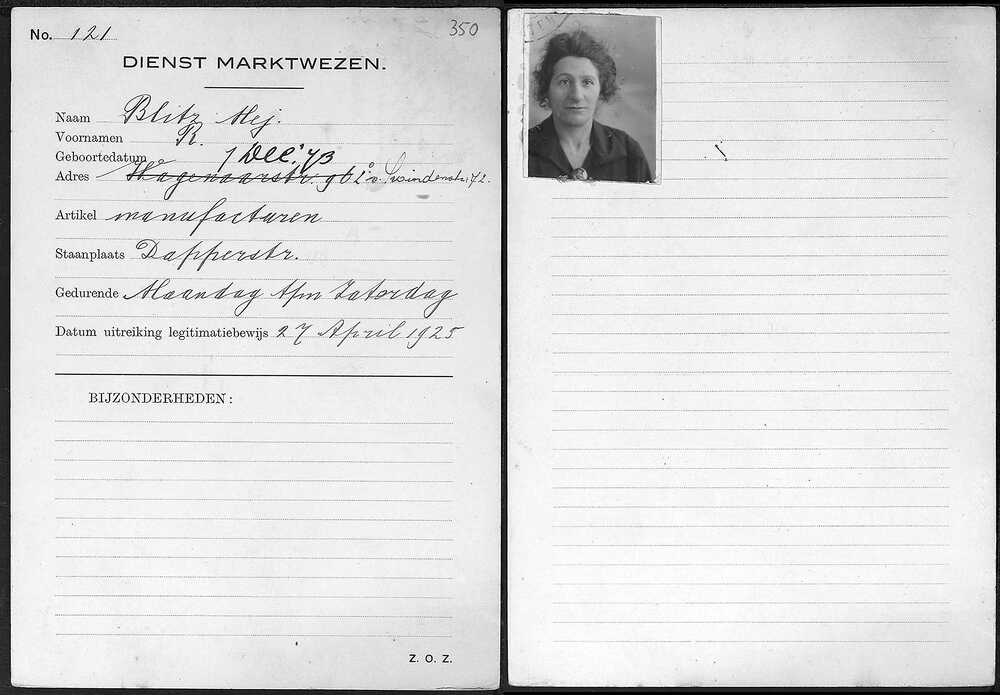 No. 121
350
DIENST MARKTWEZEN.
Naam Blitz Mej.
Voornamen R.
Geboortedatum 1 Dec. '73
Adres Wagenaarstr. 96 2e v. Swindenstr. 72.
Artikel manufacturen
Staanplaats Dapperstr.
Gedurende Maandag t/m Zaterdag
Datum uitreiking legitimatiebewijs 27 April 1925
BIJZONDERHEDEN:
Z. O. Z.